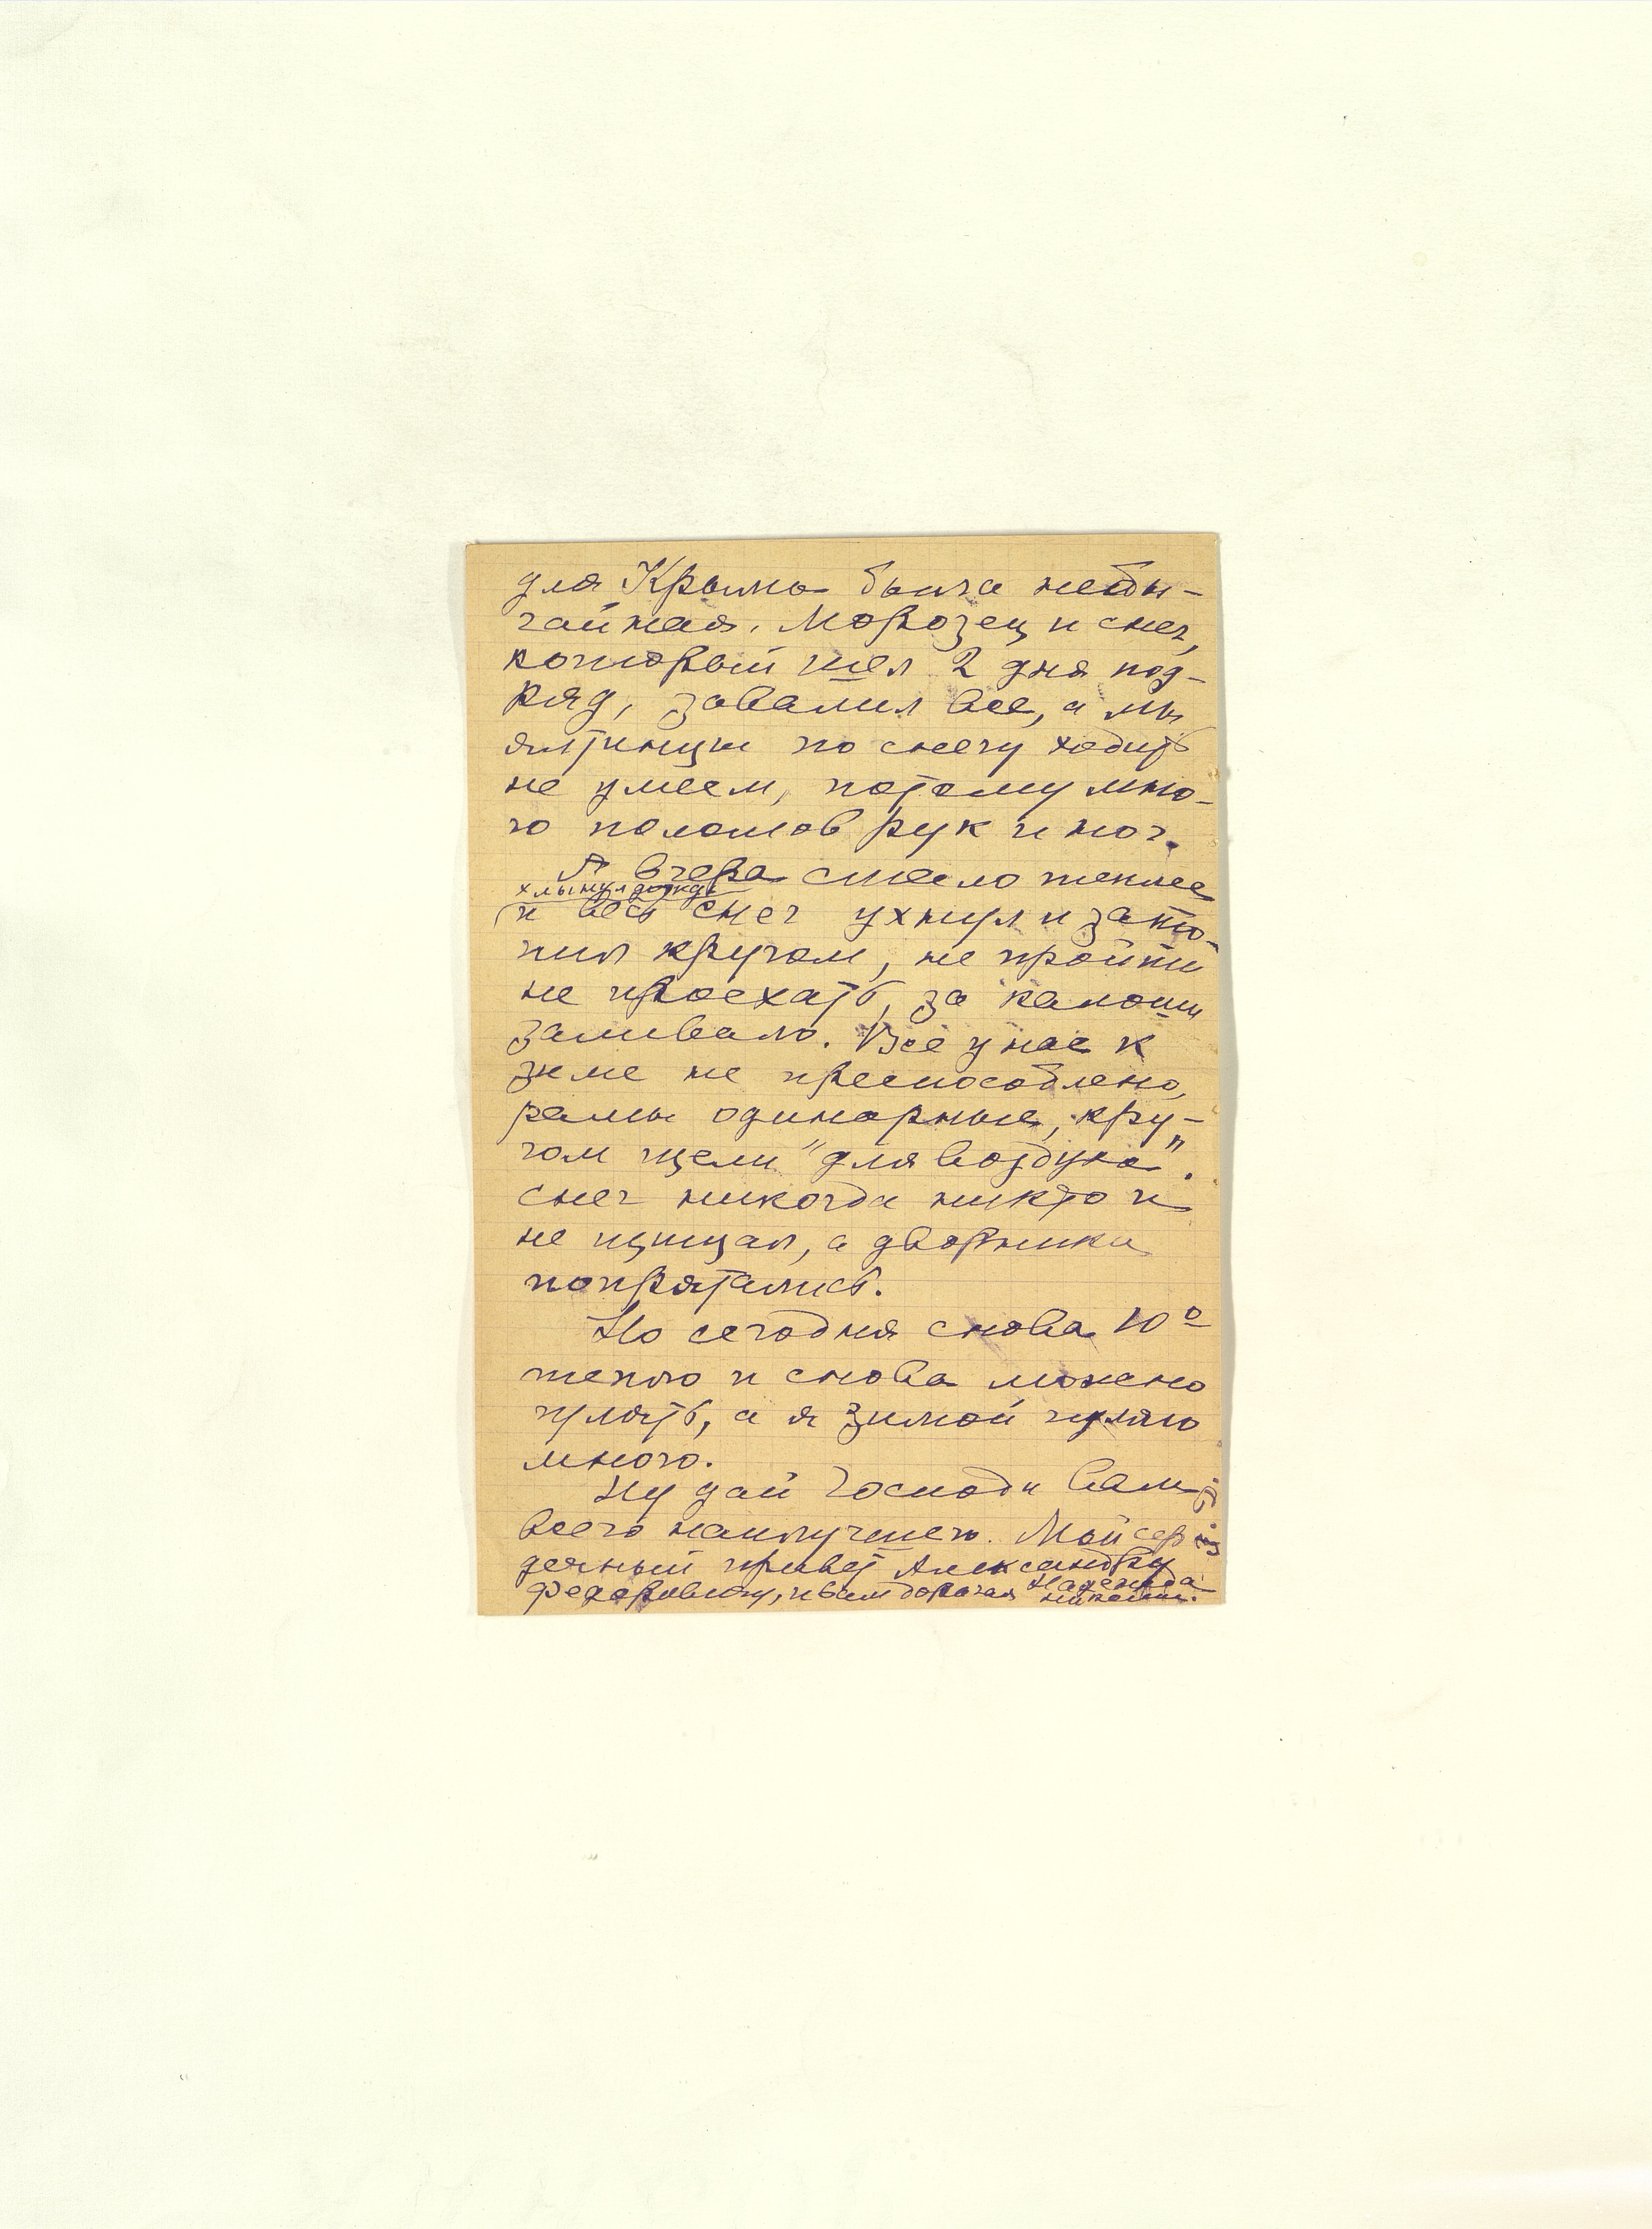 для Крыма была необы-
чайная. Морозец и снег,
который шел 2 дня под-
ряд, завалил все, а мы
ялтинцы по снегу ходить
не умеем, потому мно-
го поломов рук и ног.
А вчера стало теплее
хлынул дождь
и весь снег ухнул и зато-
пил кругом, не пройти
не проехать, за калоши
заливало. Все у нас к
зиме не преспособлено,
рамы одинарные, кру-
гом щели "для воздуха".
снег никогда никто и
не щищал, а дворники
попрятались.
Но сегодня снова 10º
тепло и снова можно
гулять, а я зимой гуляю
много.
Ну дай Господи Вам
всего наилучшего. Мой сер
дечный привет Александру
Федоровичу, и Вам дорогая Надежда